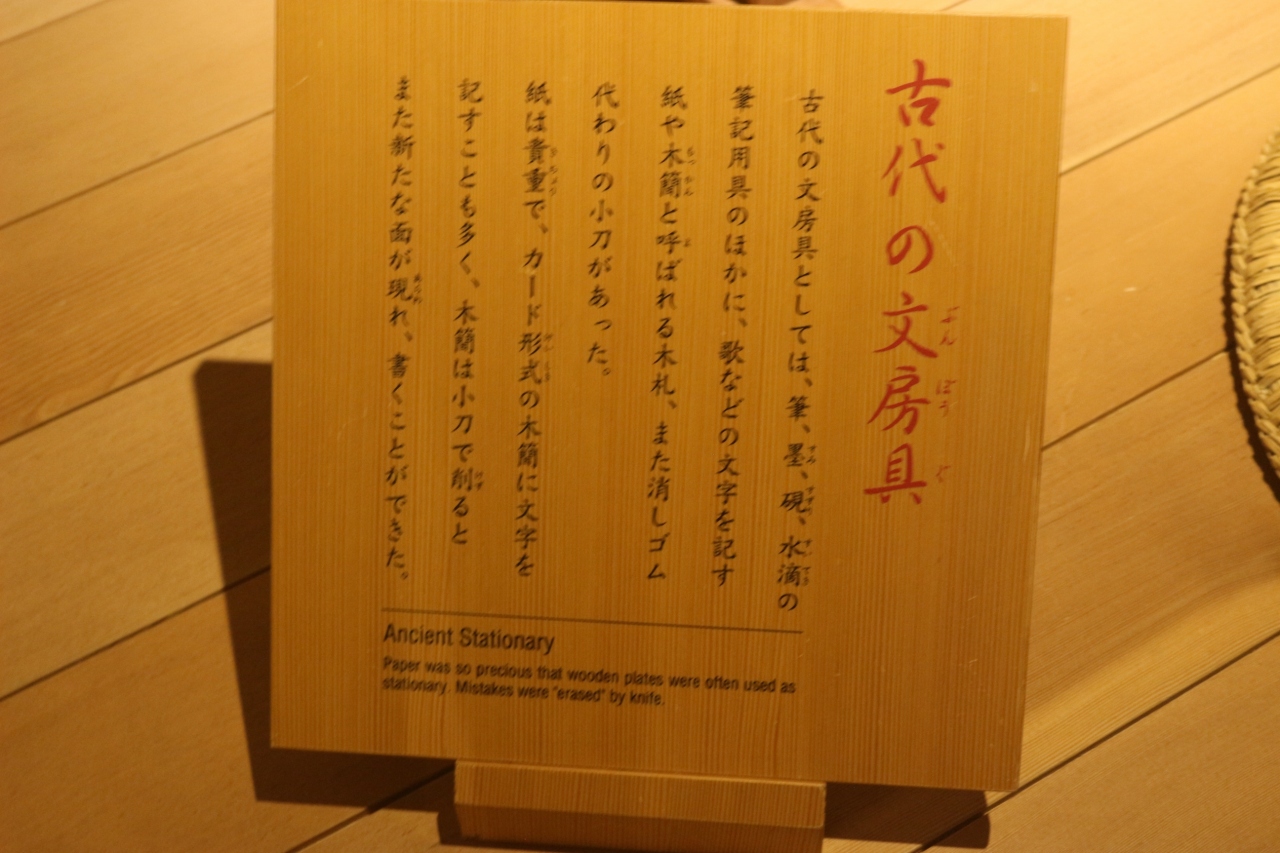 古代の文房具
古代の文房具としては、筆、墨、硯、水滴の
筆記用具のほかに、歌などの文字を記す
紙や木簡と呼ばれる木札、また消しゴム
代わりの小刀があった。
紙は貴重で、カード形式の木簡に文字を
記すことも多く、木簡は小刀で削ると
また新たな面が現れ、書くことができた。
Ancient Stationary
Paper was so precious that wooden plates were often used as
stationary. Mistakes were "erased" by knife.